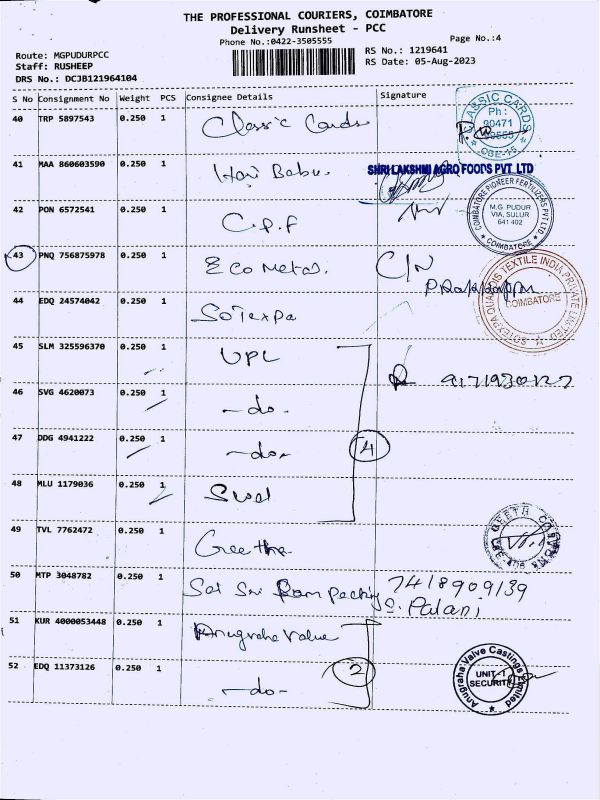 THE PROFESSIONAL COURIERS, COIMBATORE
Delivery Runsheet - PCC
Phone No.:0422-3505555
Page No.:4
Route: MGPUDURPCC
RS No.: 1219641
Staff: RUSHEEP
RS Date: 05-Aug-2023
DRS No.: DCJB121964104
S No Consignment No Weight PCS Consignee Details Signature
40 TRP 5897543 0.250 1 Classic Cards
CLASSIC CARDS
Ph :
90471
CBE-15
41 MAA 860603590 0.250 1 Hari Babu
SHRI LAKSHMI AGRO FOODS PVT LTD
42 PON 6572541 0.250 1 C.P.F
COIMBATORE PIONEER FERTILIZERS PVT LTD
M.G. PUDUR
VIA, SULUR
641 402
COIMBATORE
43 PNQ 756875978 0.250 1 Eco Metal. C/N
44 EDQ 24574042 0.250 1 SoTexpa
SOTEXPA QUALIDIS TEXTILE INDIA PRIVATE LIMITED
COIMBATORE
45 SLM 325596370 0.250 1 UPL
46 SVG 4620073 0.250 1 -do-
47 DDG 4941222 0.250 1 -do-
4
48 MLU 1179036 0.250 1
49 TVL 7762472 0.250 1 Geetha
GEETH
50 MTP 3048782 0.250 1 Sai Sri Ram Packing 7418909139
S. Palani
51 KUR 4000053448 0.250 1 Anugraha Valve
52 EDQ 11373126 0.250 1 -do- 2
Anugraha Valve Castings Limited
UNIT-1
SECURITY